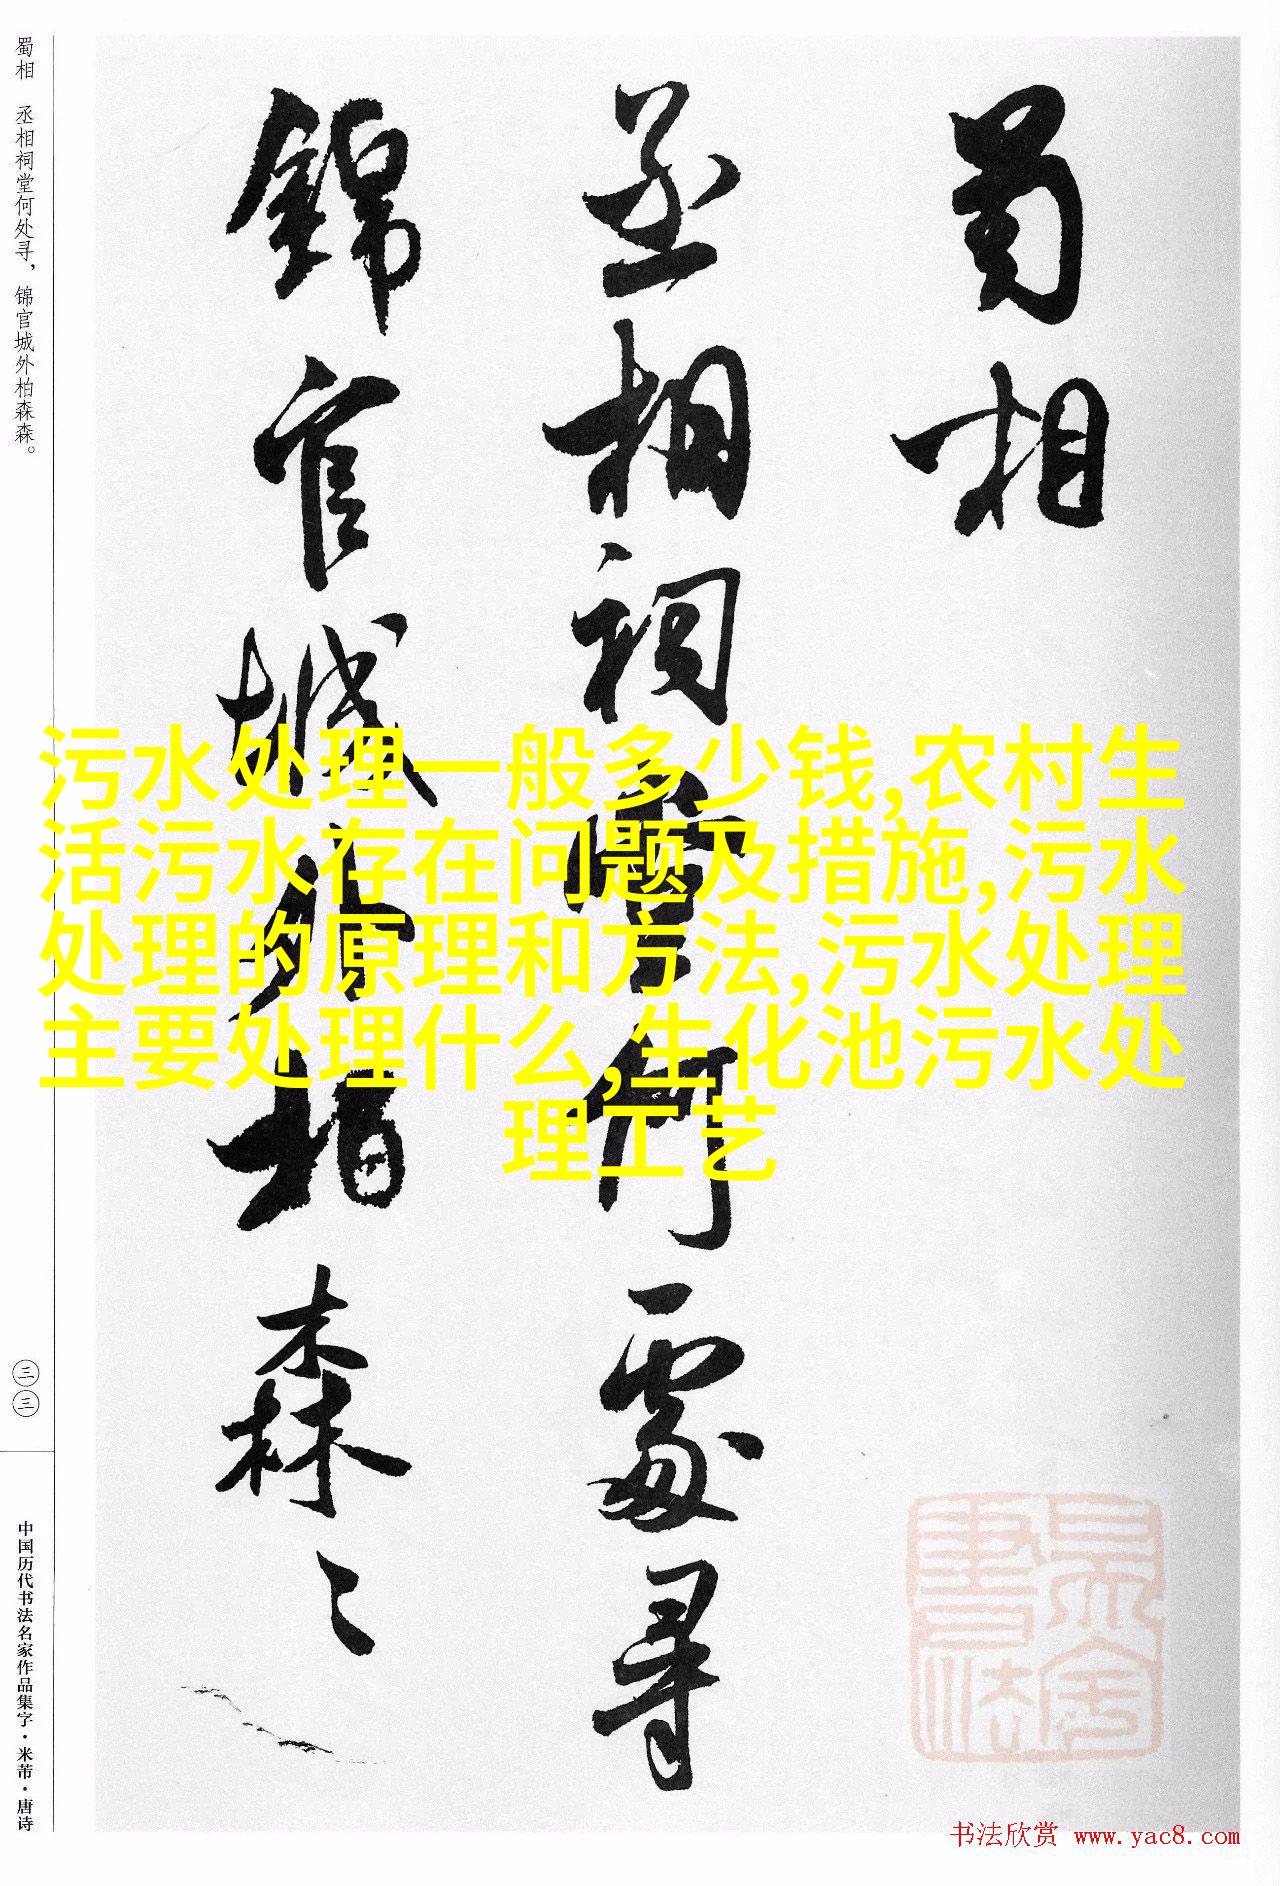 蜀相
丞相祠堂何處尋
錦官城外柏森〻
蜀相 丞相祠堂何处寻，锦官城外柏森森。
三三
中国历代书法名家作品集字·米芾·唐诗
污水处理一般多少钱,农村生
活污水存在问题及措施,污水
处理的原理和方法,污水处理
主要处理什么,生化池污水处
理工艺
书法欣赏 www.yac8.com